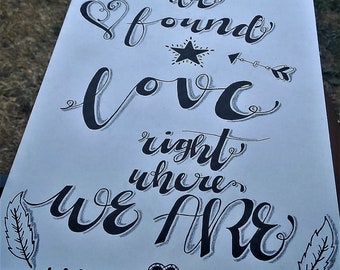 found
love
right
where
WE ARE